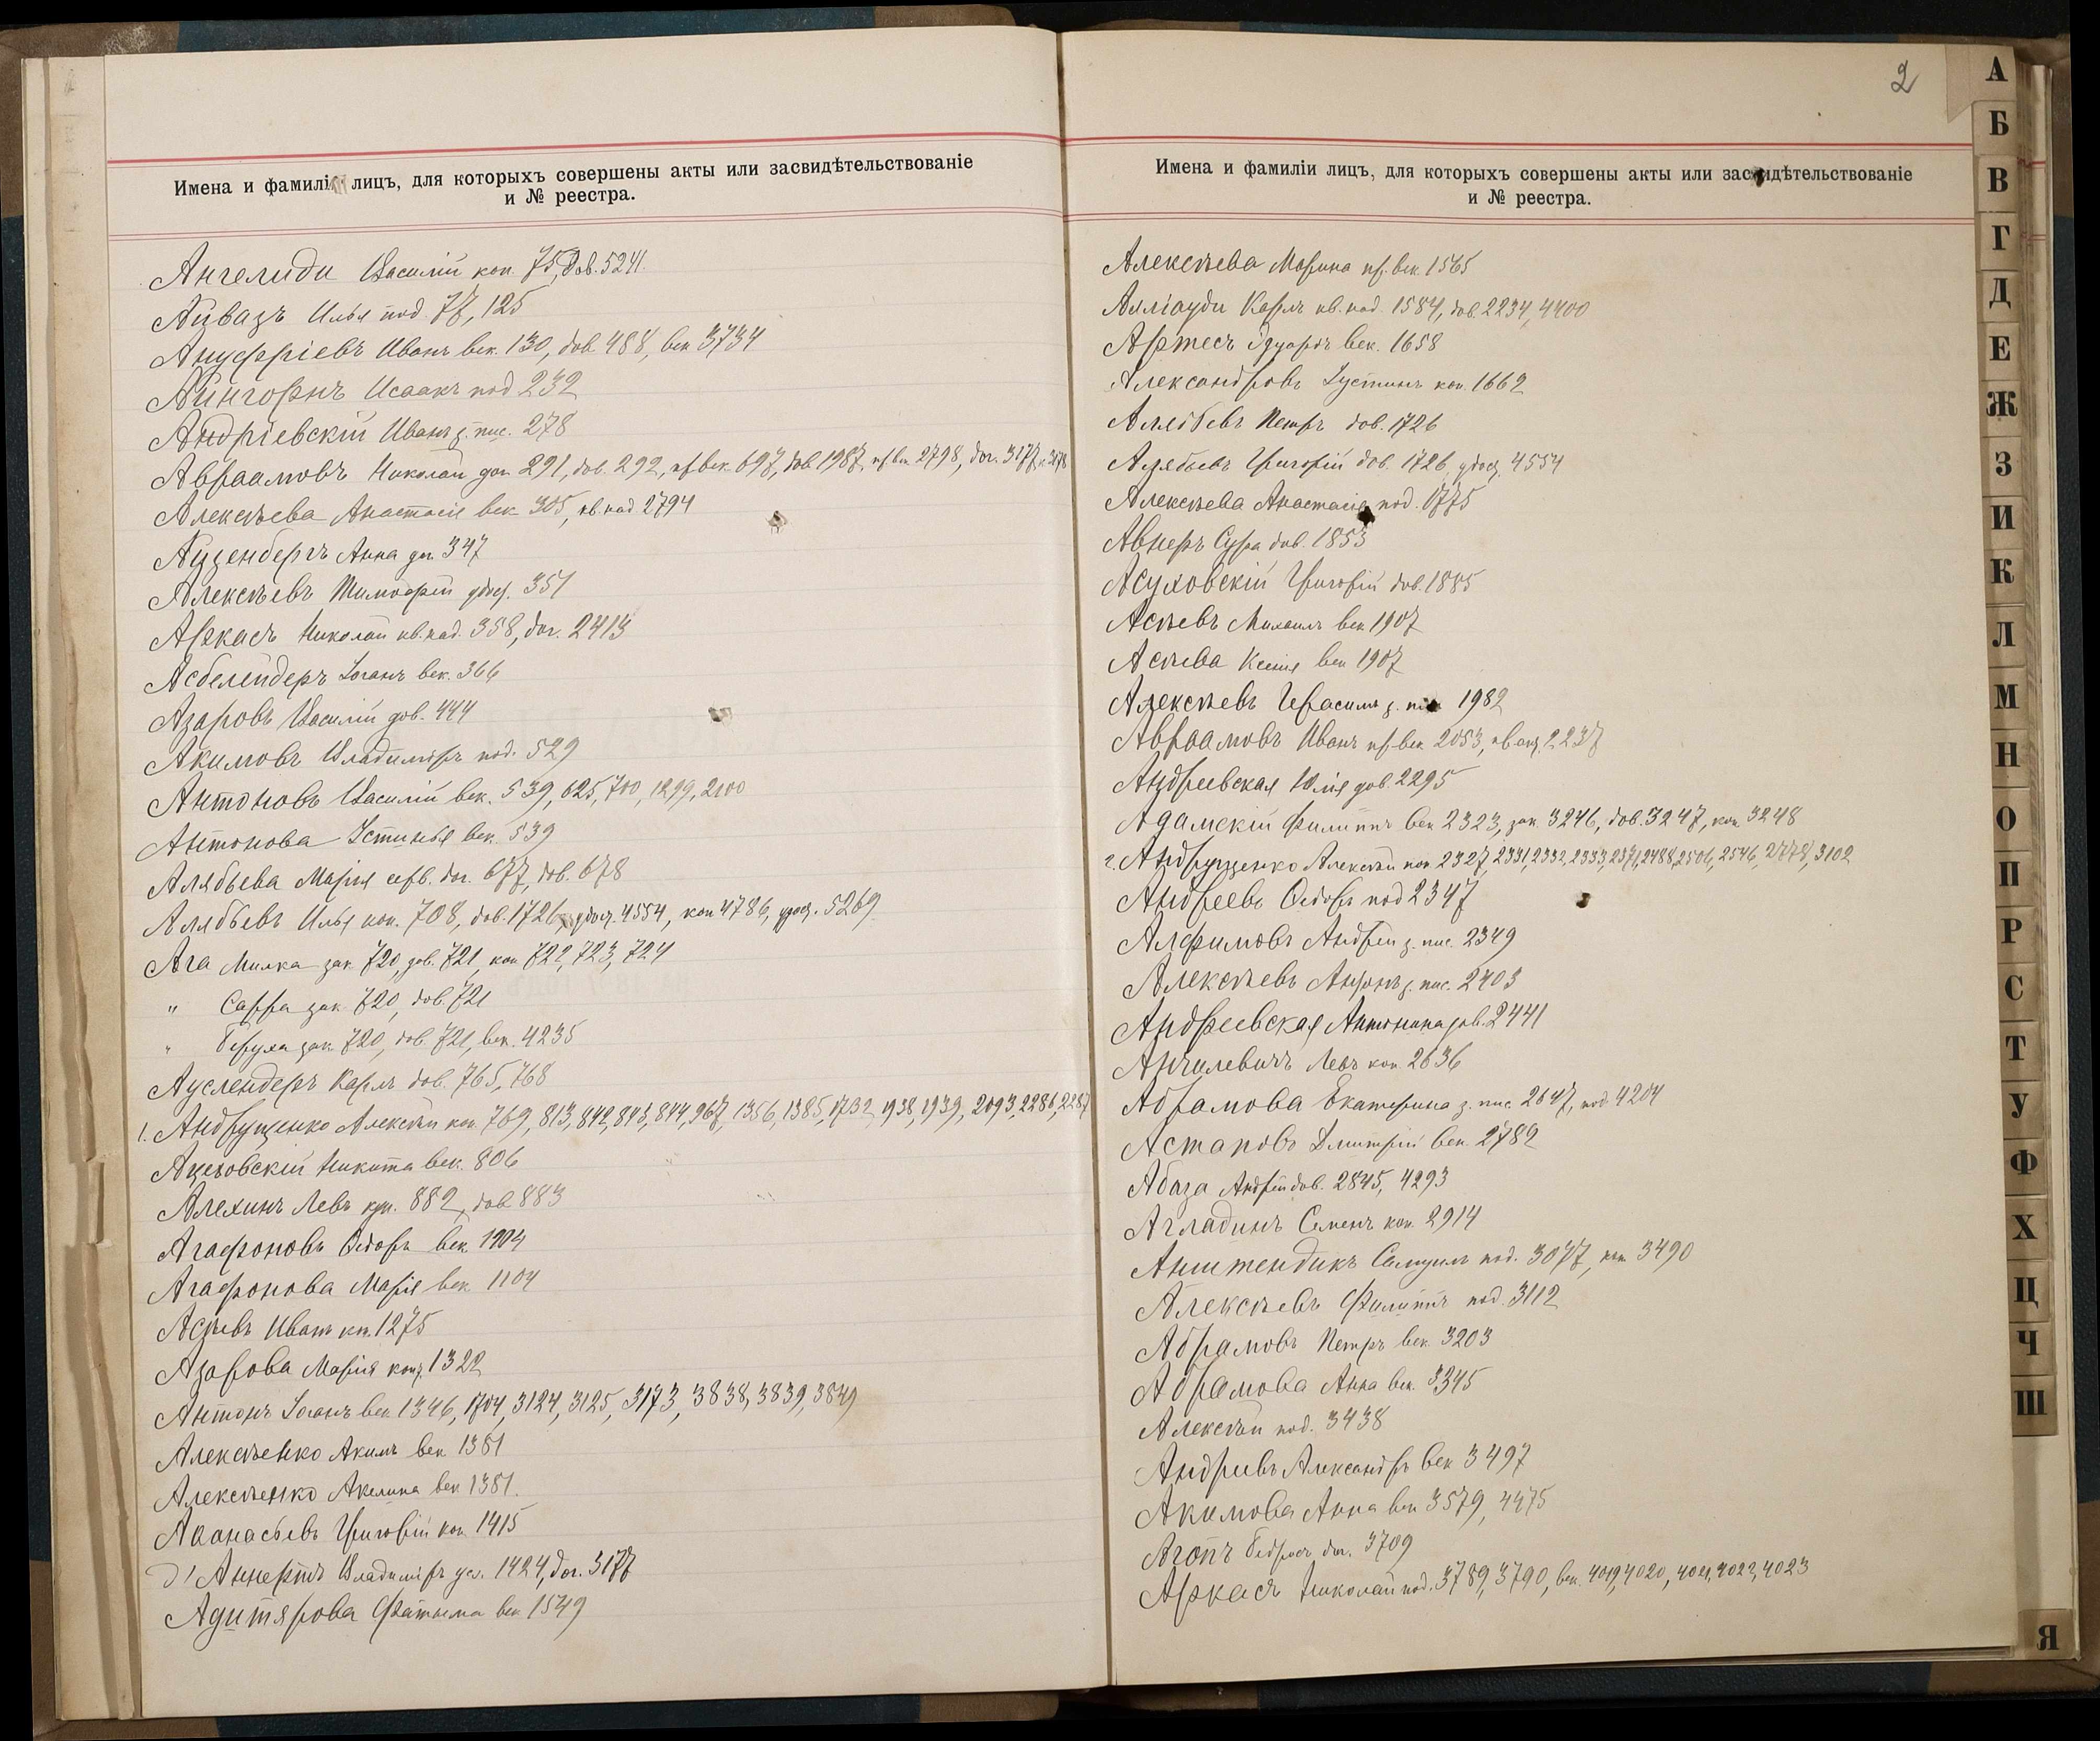 Имена и фамиліи лицъ, для которыхъ совершены акты или засвидѣтельствованіе
и № реестра.
Ангелиди Василій коп. 75, дов. 5241.
Айвазъ Илья под. 77, 125
Ануфріевъ Иванъ век. 130, дов. 488, век 3734
Айнгорнъ Исаакъ под 232
Андріевскій Иванъ з. пис. 278
Авраамовъ Николай дог. 291, дов. 292, пр. век. 697, дов. 1987, пр. век. 2798, дог. 3177, 3178
Алексѣева Анастасія век 305, кв. над 2794
Айзенбергъ Анна дог 347
Алексѣевъ Тимофей удос. 351
Аркасъ Николай кв. над. 358, дог. 2413
Асбелейдеръ Іоганъ век. 366
Азаровъ Василій дов. 444
Акимовъ Владиміръ под. 529
Антоновъ Василій век. 539, 625, 700, 1299, 2100
Антонова Устинья век. 539
Алябьева Марія серв. дог. 677, дов. 678
Алябьевъ Илья коп. 708, дов. 1726, удос. 4554, коп 4786, удос. 5269
Ага Милка зак 720, дов. 721, коп 722, 723, 724
" Сарра зак 720, дов. 721
" Беруха зак 720, дов. 721, век. 4235
Ауслендеръ Карлъ дов. 765, 768
1. Андрущенко Алексѣй коп. 769, 813, 842, 843, 844, 967, 1356, 1385, 1732, 1938, 1939, 2093, 2286, 2287
Ацеховскій Никита век. 806
Алехинъ Левъ куп. 882, дов 883
Агафоновъ Ѳедоръ век 1104
Агафонова Марія век 1104
Асѣевъ Иванъ куп. 1275
Азарова Марія 1322
Антонъ Іоганъ век 1346, 1704, 3124, 3125, 3173, 3838, 3839, 3849
Алексѣенко Акимъ век 1381
Алексѣенко Акелина век 1381.
Аѳанасьевъ Григорій коп. 1415
Д'Аннерпъ Владиміръ усл. 1424, дог. 3177
Адитярова Фатьма век 1549
2
Имена и фамиліи лицъ, для которыхъ совершены акты или засвидѣтельствованіе
и № реестра.
Алексѣева Марина пр. век. 1565
Алліауди Карлъ кв. над. 1584, дов. 2234, 4400
Артесъ Эдуардъ век. 1658
Александровъ Іустинъ коп. 1662
Алябьевъ Петръ дов. 1726
Алябьевъ Григорій дов. 1726, удос. 4554
Алексѣева Анастасія под. 1775
Авнеръ Сура дов. 1853
Асуховскій Григорій дов. 1885
Асѣевъ Михаилъ век 1907
Асѣева Ксенія век 1907
Алексѣевъ Герасимъ з. пис 1982
Авраамовъ Иванъ пр. век 2053, 2237
Андреевская Юлія дов. 2295
Адамскій Филиппъ век 2323, зак. 3246, дов. 3247, коп. 3248
2. Андрущенко Алексѣй коп 2327, 2331, 2332, 2333, 2371, 2488, 2506, 2546, 2778, 3102
Андреевъ Ѳедоръ под 2347
Алфимовъ Андрей з. пис. 2349
Алексѣевъ Андронъ з. пис. 2403
Андреевская Антонина дов. 2441
Ангилевичъ Левъ коп 2636
Абрамова Екатерина з. пис. 2647, под. 4204
Астаповъ Дмитрій век. 2789
Абаза Андрей дов. 2845, 4293
Агладинъ Семенъ коп. 2914
Анштендикъ Самуилъ под. 3077, 3490
Алексѣевъ Филиппъ под. 3112
Абрамовъ Петръ век. 3203
Абрамова Анна век. 3345
Алексѣй под. 3438
Андреевъ Александръ век 3497
Акимова Анна век 3579, 4475
Агопъ Бедросъ дог. 3709
Аркасъ Николай под. 3789, 3790, век. 4019, 4020, 4021, 4022, 4023
А
Б
В
Г
Д
Е
Ж
З
И
К
Л
М
Н
О
П
Р
С
Т
У
Ф
Х
Ц
Ч
Ш
Я